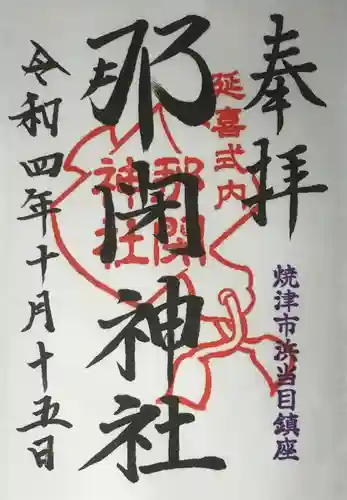 奉拝
延喜式内
焼津市浜当目鎮座
那閉神社
那閇神社
令和四年十月十五日